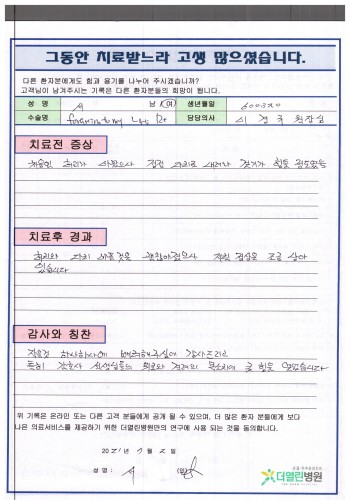 그동안 치료받느라 고생 많으셨습니다.
다른 환자분에게도 힘과 용기를 나누어 주시겠습니까?
고객님이 남겨주시는 기록은 다른 환자분들의 희망이 됩니다.
성 명 서 남 (여) 생년월일 600320
수술명 담당의사 이 경 우 원장님
치료전 증상
처음엔 허리가 아팠으나 점점 다리로 내려와 걷기가 힘들 정도였음
치료후 경과
허리와 다리 아픈것은 괜찮아졌으나 저린 증상은 조금 남아
있습니다
감사와 칭찬
작은것 하나하나에 배려해주심에 감사드리고
특히 간호사 선생님들의 위로와 격려의 목소리에 큰 힘을 얻었습니다
위 기록은 온라인 또는 다른 고객 분들에게 공개 될 수 있으며, 더 많은 환자 분들에게 보다
나은 의료서비스를 제공하기 위한 더열린병원만의 연구에 사용 되는 것을 동의합니다.
2021년 7월 2일
성 명 : 서
더열린병원